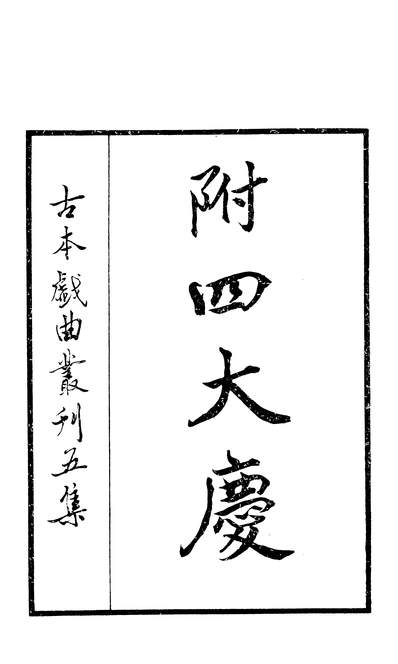 附四大慶
古本戲曲叢刊五集